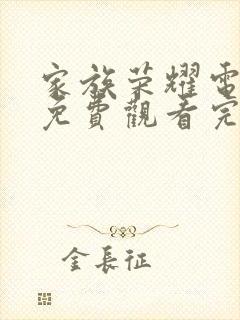 家族荣耀電
免費觀看完
金長征